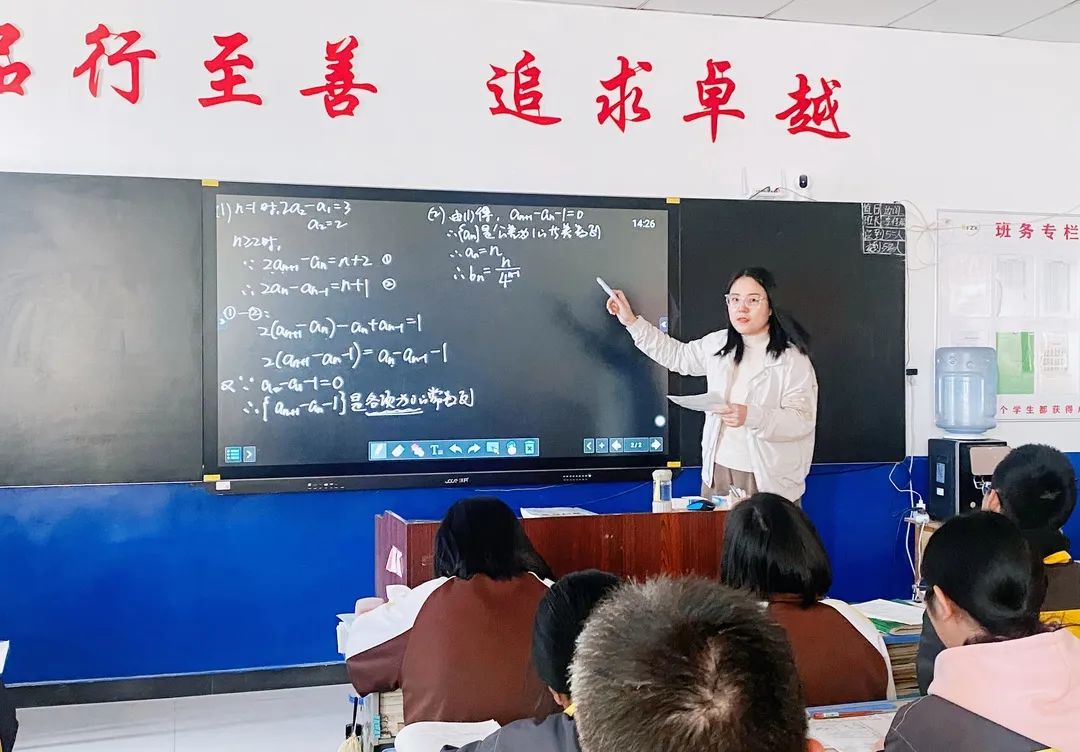 品行至善 追求卓越
(1) n=1时, 2a₂-a₁=3
a₂=2
n≥2时,
∵ 2aₙ₊₁-aₙ=n+2 ①
∴ 2aₙ-aₙ₋₁=n+1 ②
①-②:
2(aₙ₊₁-aₙ)-aₙ+aₙ₋₁=1
2(aₙ₊₁-aₙ-1)=aₙ-aₙ₋₁-1
又∵ a₂-a₁-1=0
∴{aₙ₊₁-aₙ-1}是各项为0的常数列
(2) 由(1)得, aₙ₊₁-aₙ-1=0
∴{aₙ}是公差为1的等差数列
∴aₙ=n
∴bₙ=n/4ⁿ⁻¹
14:26
2/2
班务专栏
个学生都获得